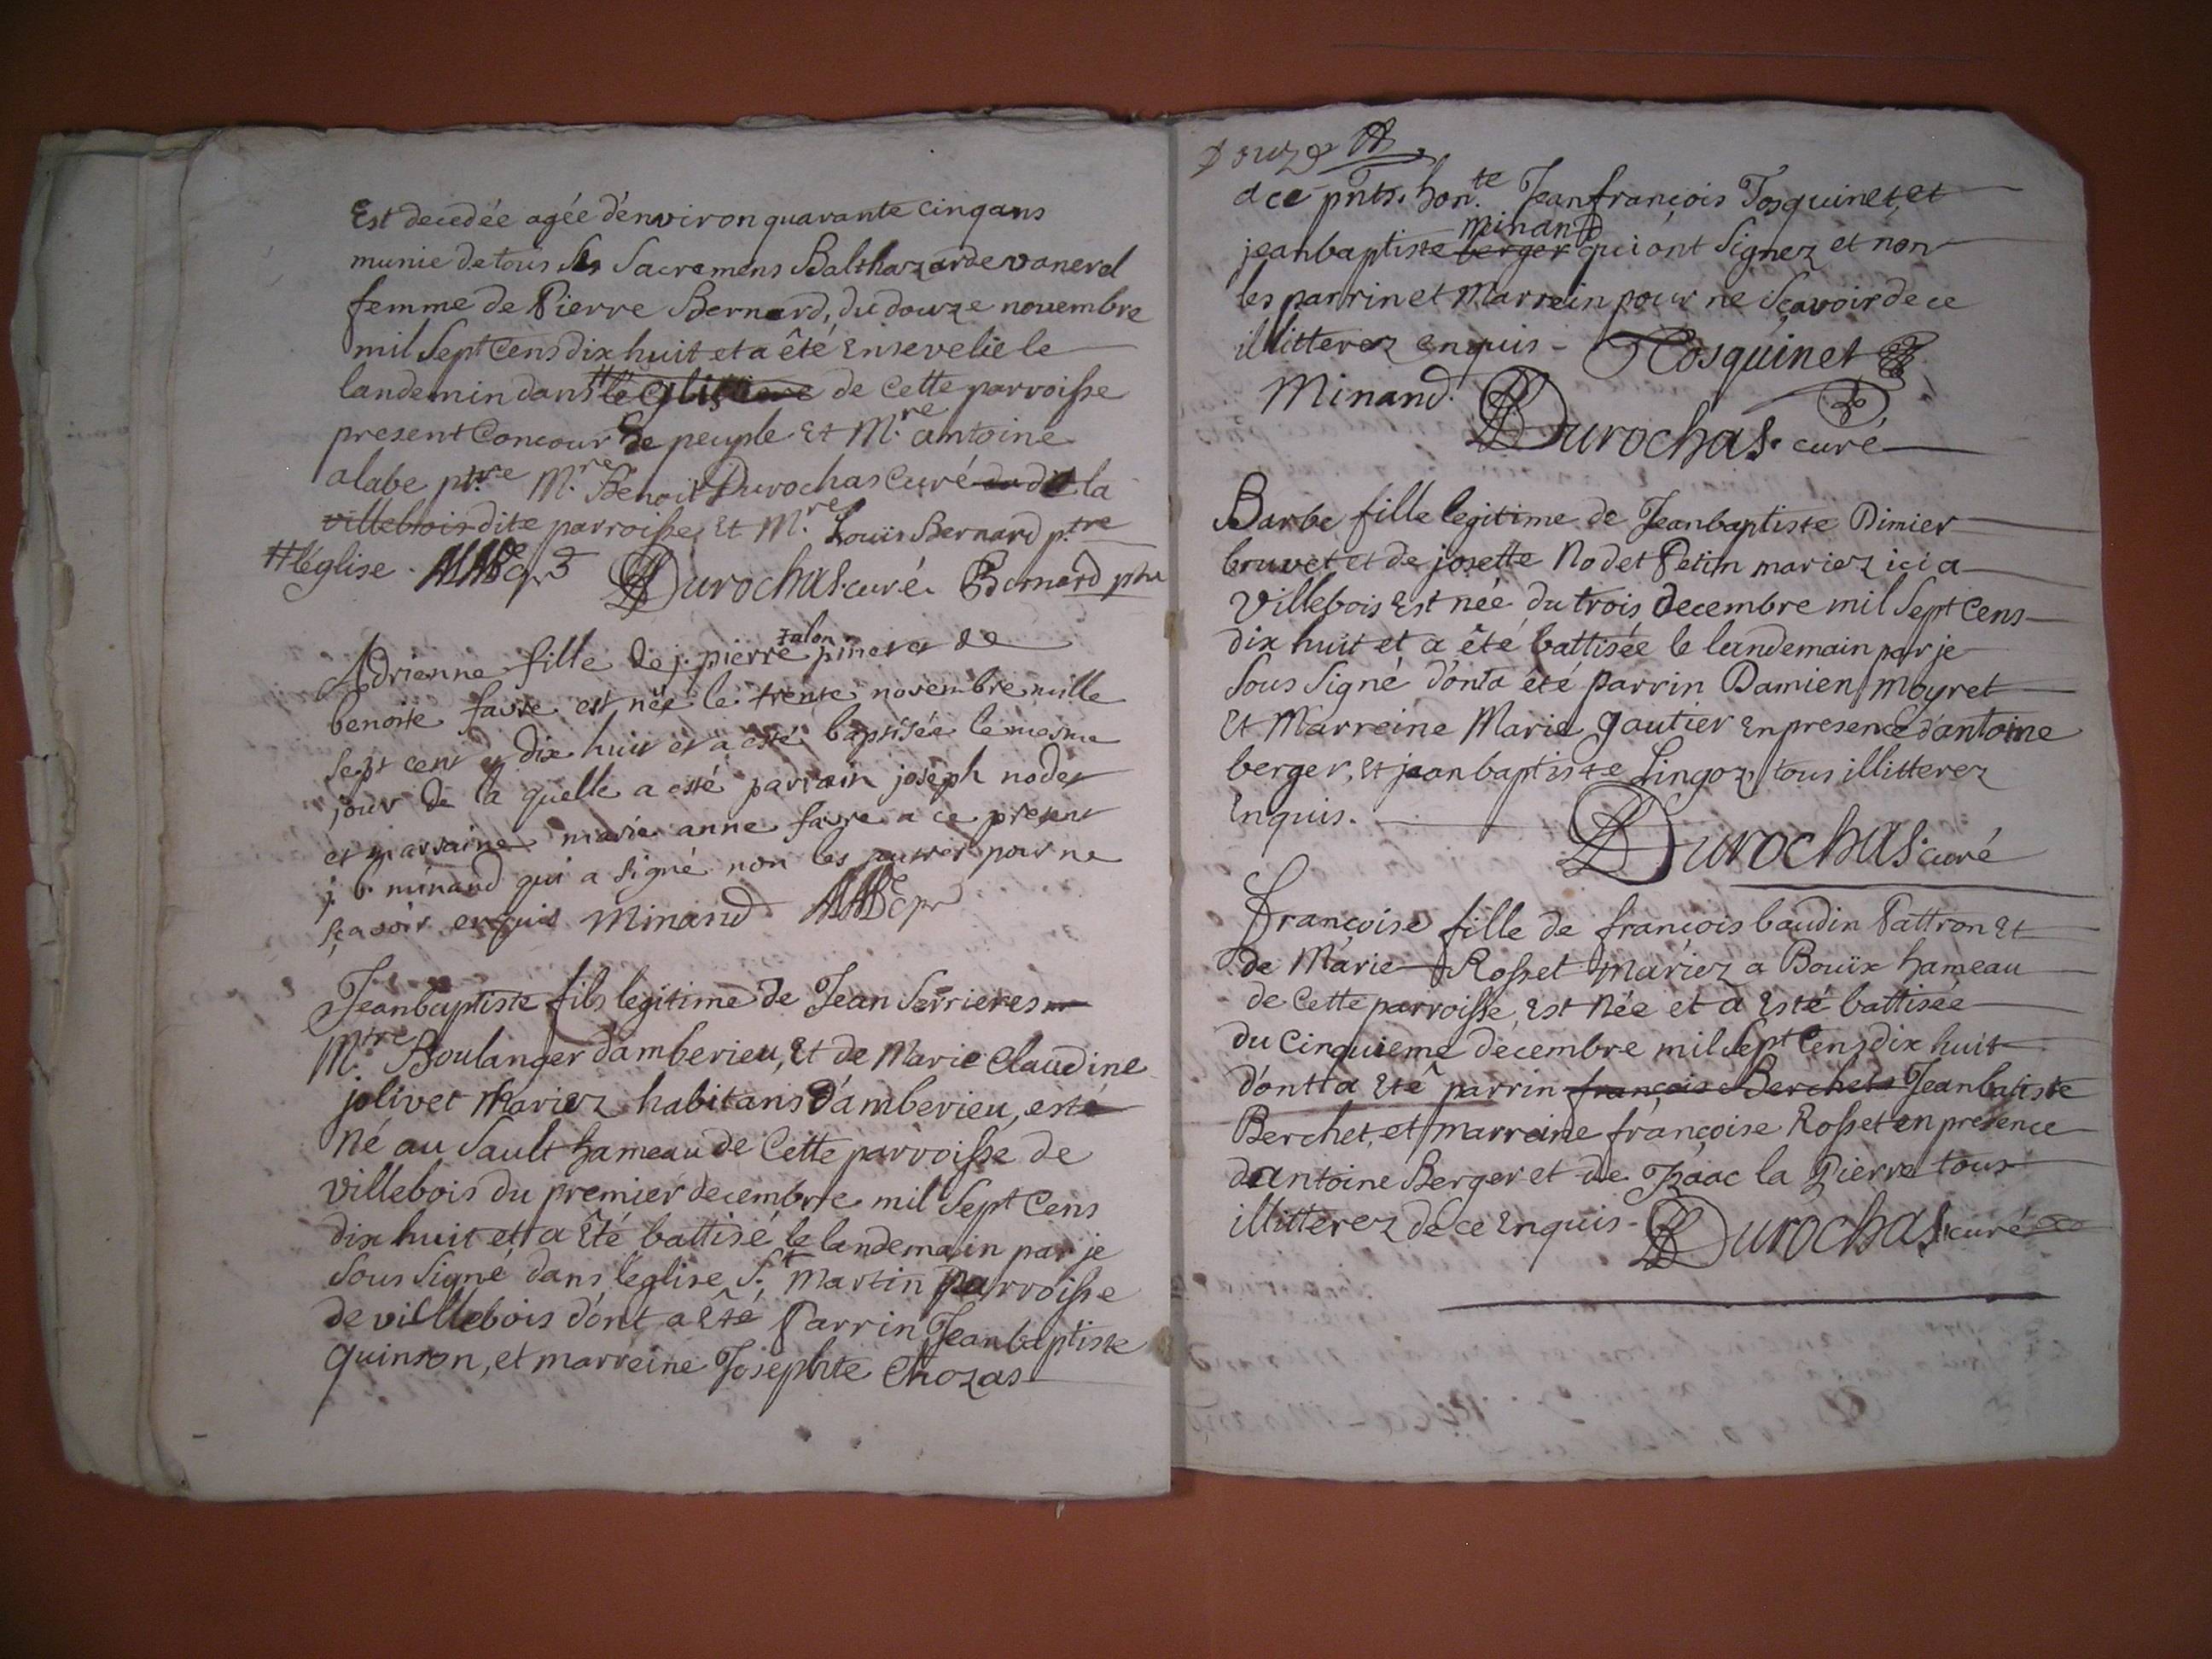 Est decedée agée d'environ quarante cinq ans
munie de tous ses Sacremens Balthazarde vanerel
femme de Pierre Bernard, du douze novembre
mil Sept Cens dix huit et a êté Ensevelie le
landemin dans # le de Cette parroisse
present Concour de peuple Et M.re antoine
alabe ptre M.re Benoit Durochas Curé dudit la
villebois dite parroisse, Et M.re Louis Bernard p.tre
# l'église. Durochas. curé. Bernard ptre
Adrienne fille de j. pierre talon pinet et de
benoite favre est née le trente novembre mille
sept cent et dix huit et a esté baptisée le mesme
jour de la quelle a esté parrain joseph nodet
et marraine marie anne favre a ce present
j. b. minand qui a signé non les autres pour ne
sçavoir enquis Minand
Jeanbaptiste fils legitime de Jean Serrieres
M.tre Boulanger d'amberieu, Et de Marie Claudine
jolivet Mariez habitans d'amberieu, est
Né au Sault hameau de Cette parroisse de
villebois du premier decembre mil Sept Cens
dix huit et a Eté battisé le landemain par je
Sous Signé dans l'eglise S.t Martin parroisse
de villebois d'ont a Eté Parrin Jeanbaptiste
quinson, et marreine Josephte Chozas
douze
a ce pnts. hon.te Jeanfrançois Tosquinet, et
minand
jeanbaptiste berger qui ont Signez et non
les parrin et Marrein pour ne Sçavoir de ce
illitterez enquis - Tosquinet
Minand. Durochas. curé
Barbe fille legitime de Jeanbaptiste Dimier
bouvet et de josette Nodet Petin mariez ici a
Villebois Est née du trois decembre mil Sept Cens
dix huit et a êté battisée le landemain par je
Sous Signé d'onta été parrin Damien Moyret
Et Marreine Marie gautier En presence d'antoine
berger, Et jeanbaptiste Lingoz, tous illitterez
Enquis.
Durochas. curé
Françoise fille de françois baudin Pattron Et
de Marie Rosset Mariez a Bouix hameau
de Cette parroisse, Est Née et a Esté battisée
du Cinquieme decembre mil Sept Cens dix huit
d'ont a Eté parrin françois Berchet Jeanbatiste
Berchet, et marreine françoise Rosset en presence
d'antoine Berger et de Isaac la Pierre tous
illitterez de ce Enquis - Durochas. curé